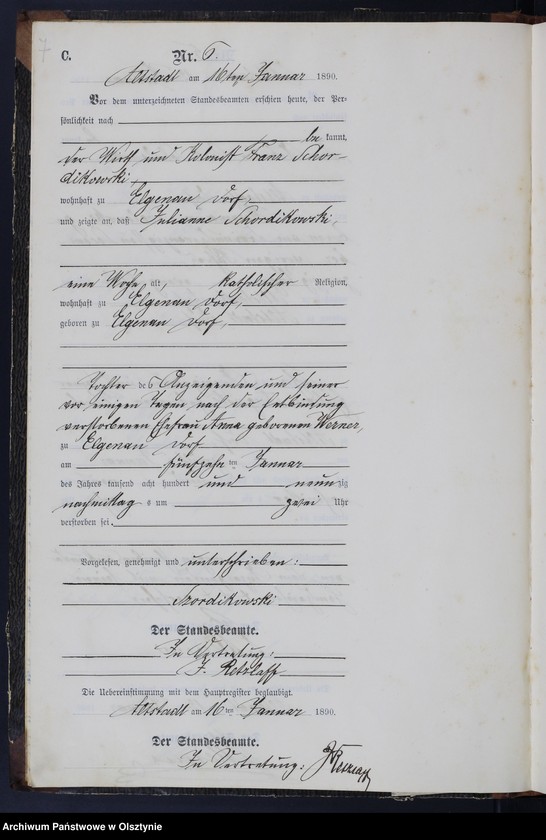 7
C.
Nr. 6.
Altstadt am 16ten Januar 1890.
Vor dem unterzeichneten Standesbeamten erschien heute, der Per-
sönlichkeit nach
be kannt,
der Wirth und Kolonist Franz Schor-
dikowski,
wohnhaft zu Elgenau Dorf,
und zeigte an, daß Julianne Schordikowski,
eine Woche alt, katholischer Religion,
wohnhaft zu Elgenau Dorf,
geboren zu Elgenau Dorf,
Tochter des Anzeigenden und seiner
vor einigen Tagen nach der Entbindung
verstorbenen Ehefrau Anna geborenen Werner,
zu Elgenau Dorf
am fünfzehn ten Januar
des Jahres tausend acht hundert und neun zig
nachmittag s um zwei Uhr
verstorben sei.
Vorgelesen, genehmigt und unterschrieben:
Szordikowski
Der Standesbeamte.
In Vertretung:
J. Retzlaff
Die Uebereinstimmung mit dem Hauptregister beglaubigt.
Altstadt am 16 ten Januar 1890.
Der Standesbeamte.
In Vertretung: J Retzlaff
Archiwum Państwowe w Olsztynie